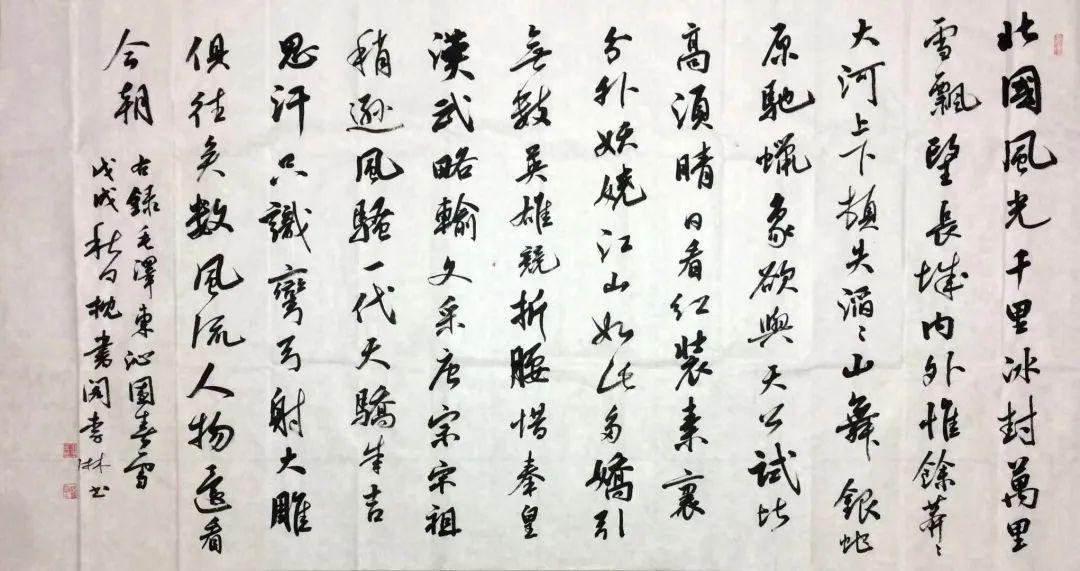 北國風光千里冰封萬里
雪飄望長城内外惟餘莽〻
大河上下頓失滔〻山舞銀蛇
原馳蠟象欲與天公試比
高須晴日看红裝素裹
分外妖嬈江山如此多嬌引
無數英雄競折腰惜秦皇
漢武略輸文采唐宗宋祖
稍遜風騷一代天驕成吉
思汗只識彎弓射大雕
俱往矣数風流人物還看
今朝
右録毛澤東沁園春雪
戊戌秋日枕書阁李淋书